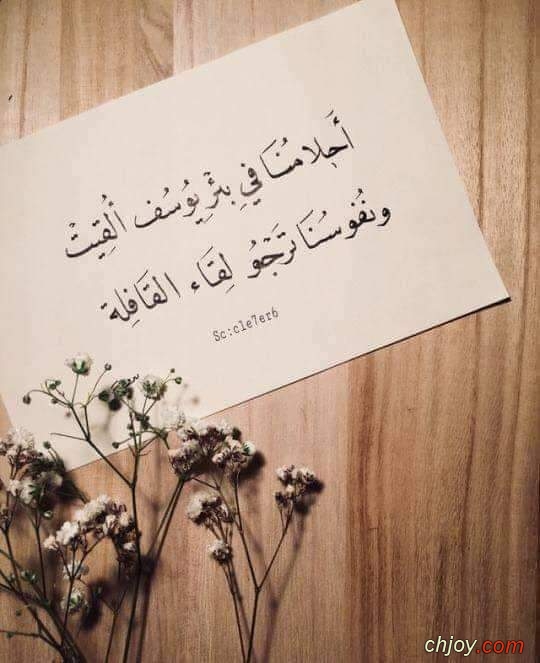 أَحْلامُنَا فِي بِئْرِ يُوسُف أُلْقِيَتْ
ونُفُوسُنَا تَرْجُو لِقَاء القَافِلة
Sc:cle7er6
chjoy.com